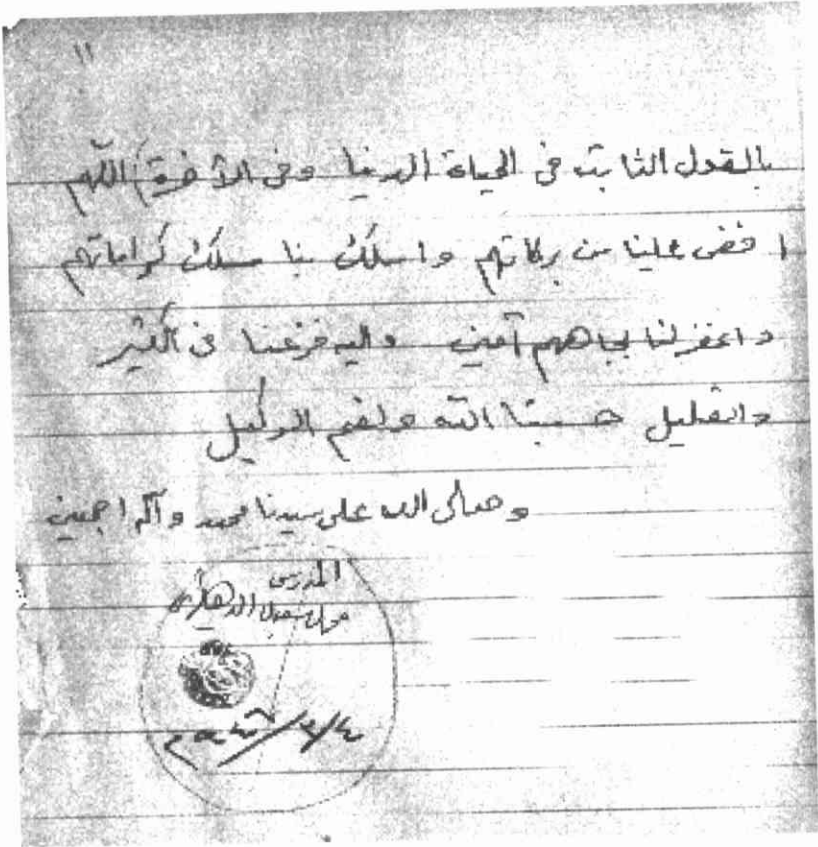 ١١
بالقول الثابت في الحياة الدنيا وفي الآخرة اللهم
افض علينا من بركاتهم واسلك بنا مسلك كراماتهم
واغفر لنا بجاههم آمين واليه فزعنا في الكثير
والقليل حسبنا الله ونعم الوكيل
وصلى الله على سيدنا محمد وآله اجمعين
المدرس